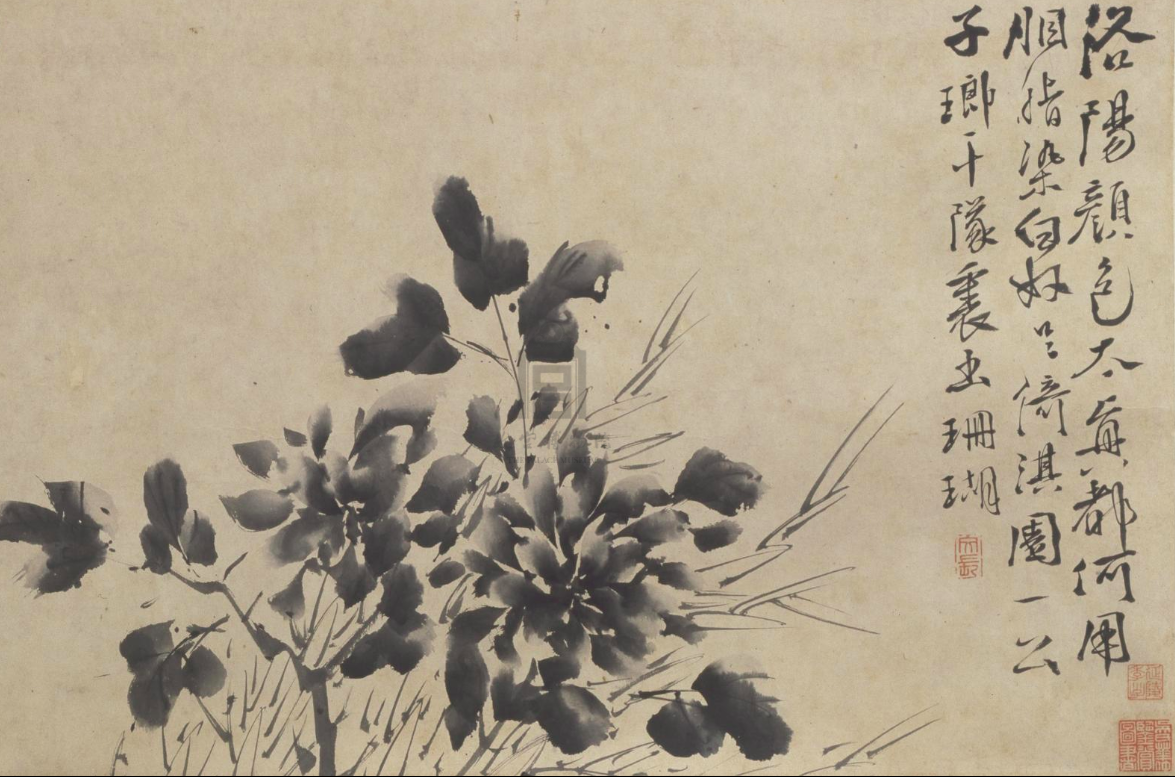 洛陽顏色太真都何用
胭脂染白奴倚淇園一公
子瑯干隊裏出珊瑚